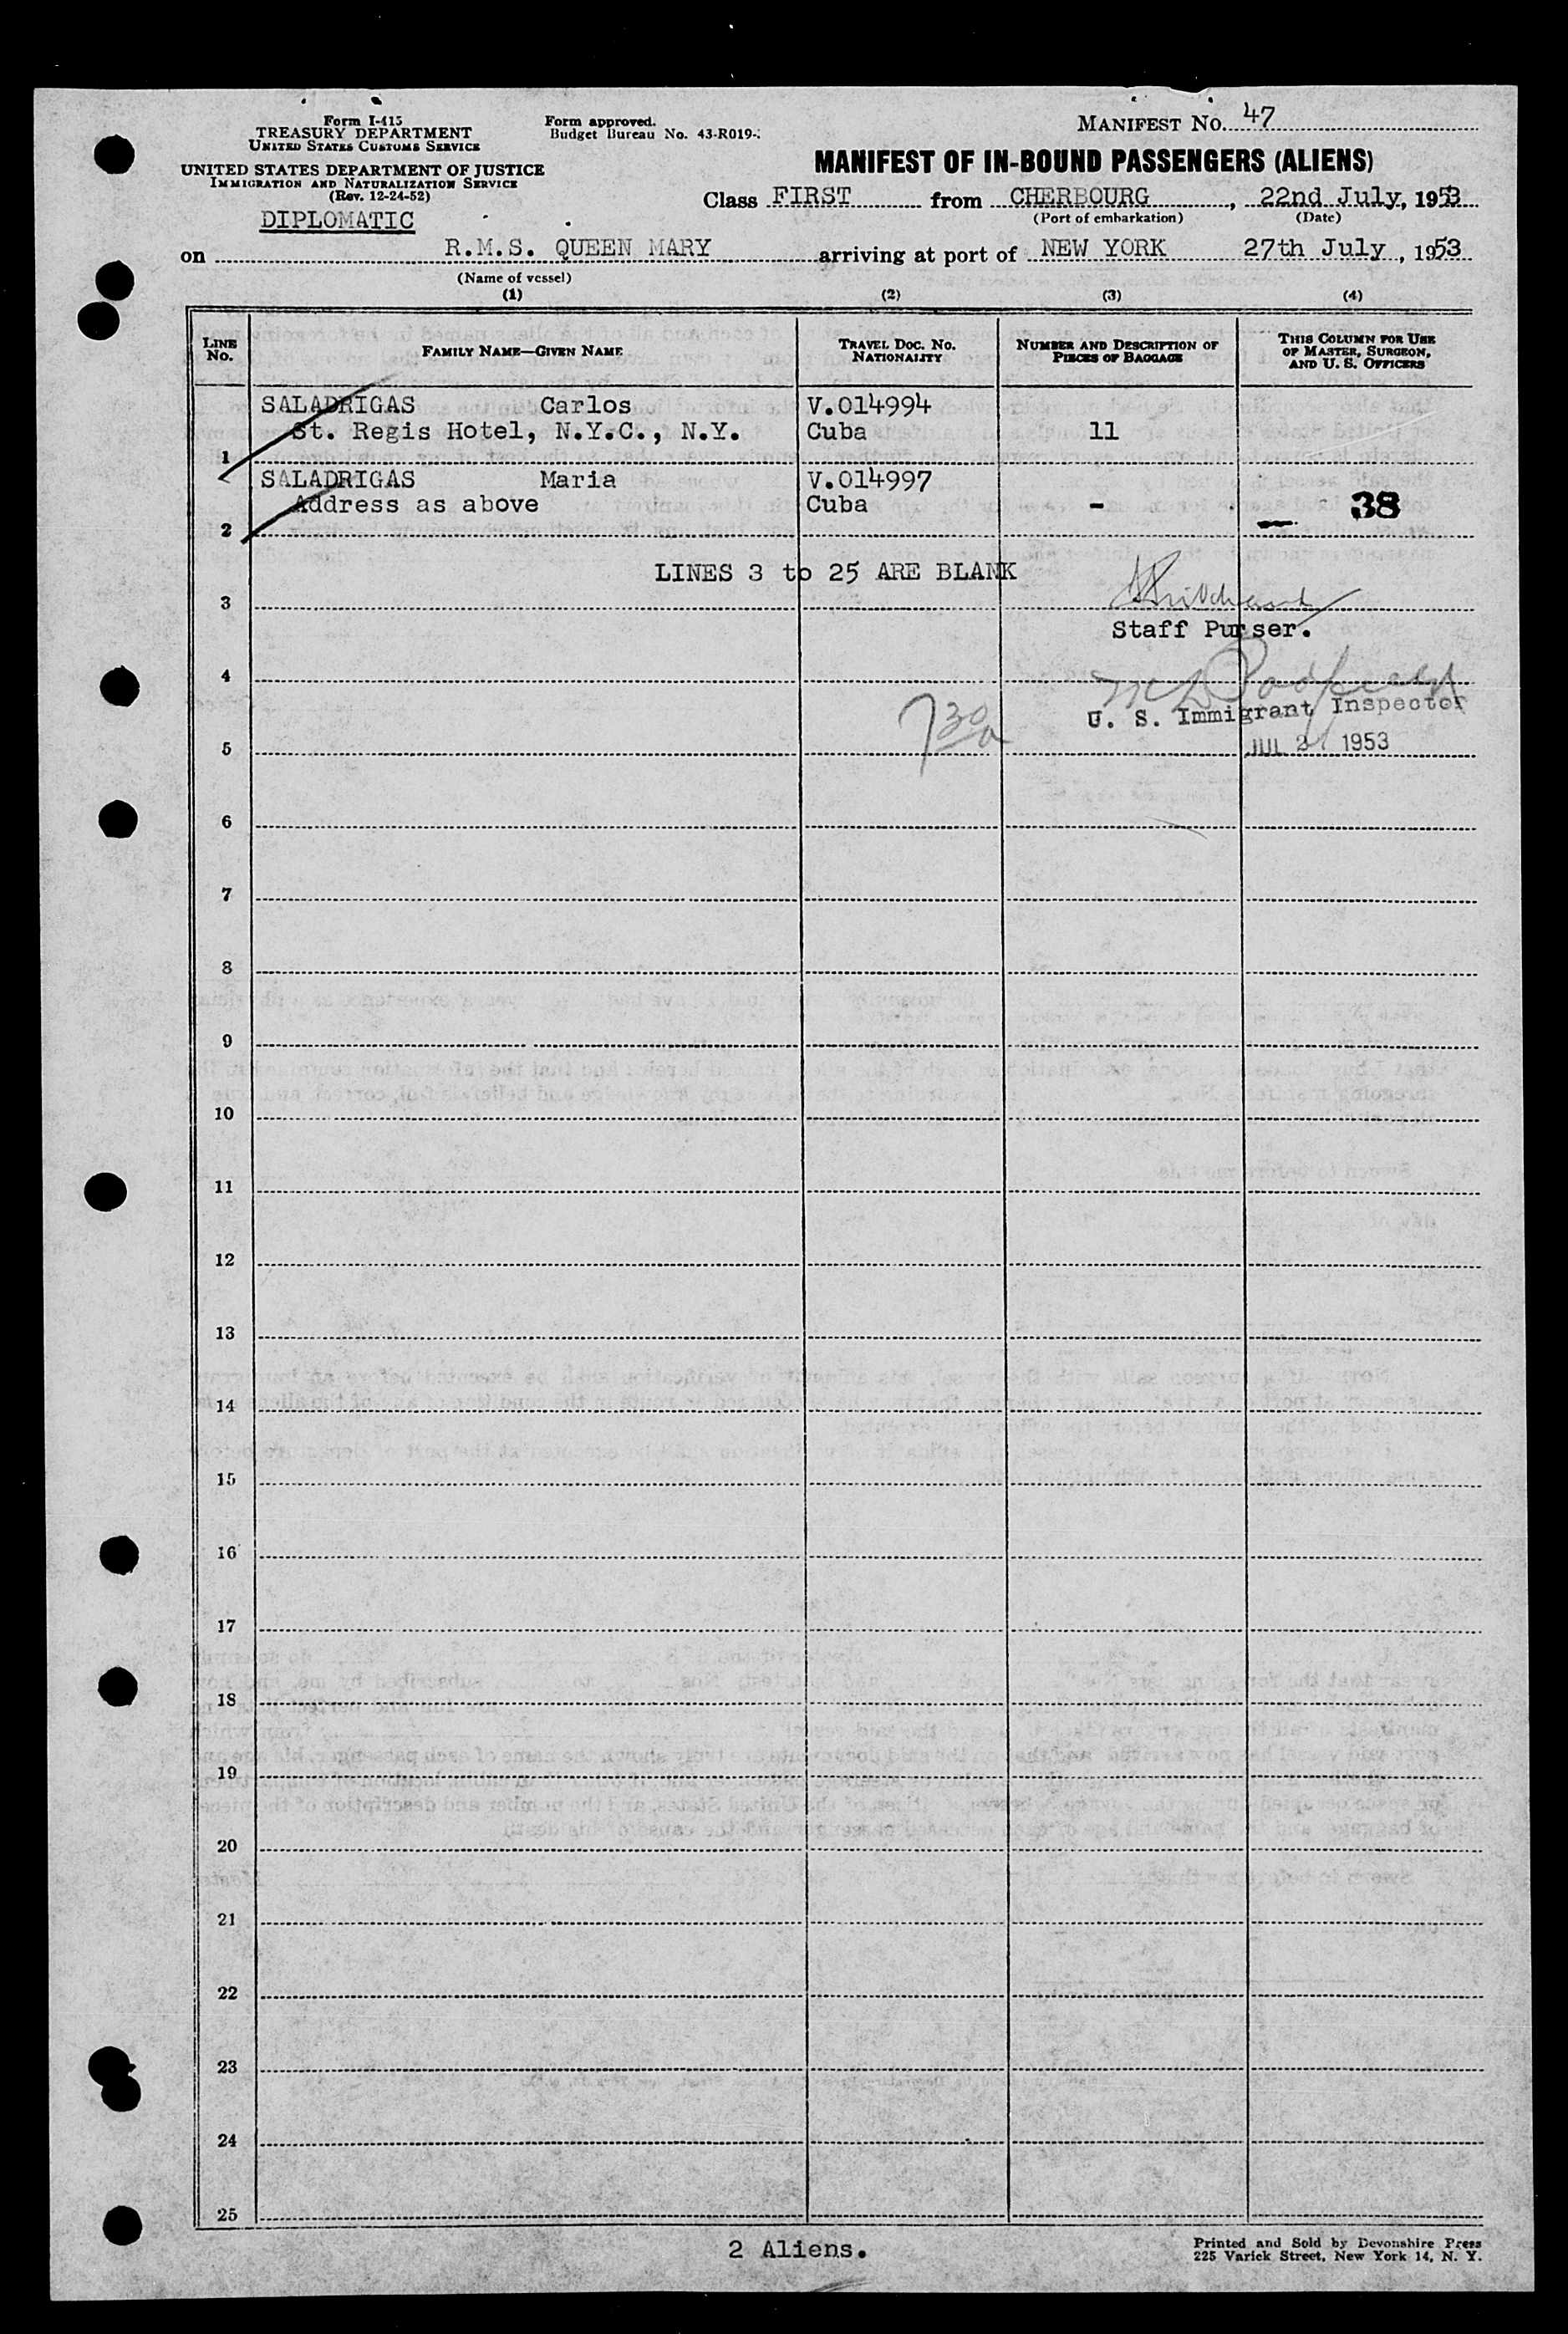 Form I-415
TREASURY DEPARTMENT
UNITED STATES CUSTOMS SERVICE
UNITED STATES DEPARTMENT OF JUSTICE
IMMIGRATION AND NATURALIZATION SERVICE
(Rev. 12-24-52)
DIPLOMATIC
Form approved.
Budget Bureau No. 43-R019-
MANIFEST NO. 47
MANIFEST OF IN-BOUND PASSENGERS (ALIENS)
Class FIRST from CHERBOURG, 22nd July, 1953
(Port of embarkation) (Date)
on R.M.S. QUEEN MARY arriving at port of NEW YORK 27th July, 1953
(Name of vessel)
(1) (2) (3) (4)
LINE NO.
FAMILY NAME—GIVEN NAME
TRAVEL DOC. NO. NATIONALITY
NUMBER AND DESCRIPTION OF PIECES OF BAGGAGE
THIS COLUMN FOR USE OF MASTER, SURGEON, AND U. S. OFFICERS
SALADRIGAS Carlos V.014994
St. Regis Hotel, N.Y.C., N.Y. Cuba 11
1
SALADRIGAS Maria V.014997
Address as above Cuba - 38
2
LINES 3 to 25 ARE BLANK
3
Staff Purser.
4
U. S. Immigrant Inspector
730a
JUL 27 1953
5
6
7
8
9
10
11
12
13
14
15
16
17
18
19
20
21
22
23
24
25
2 Aliens.
Printed and Sold by Devonshire Press
225 Varick Street, New York 14, N. Y.